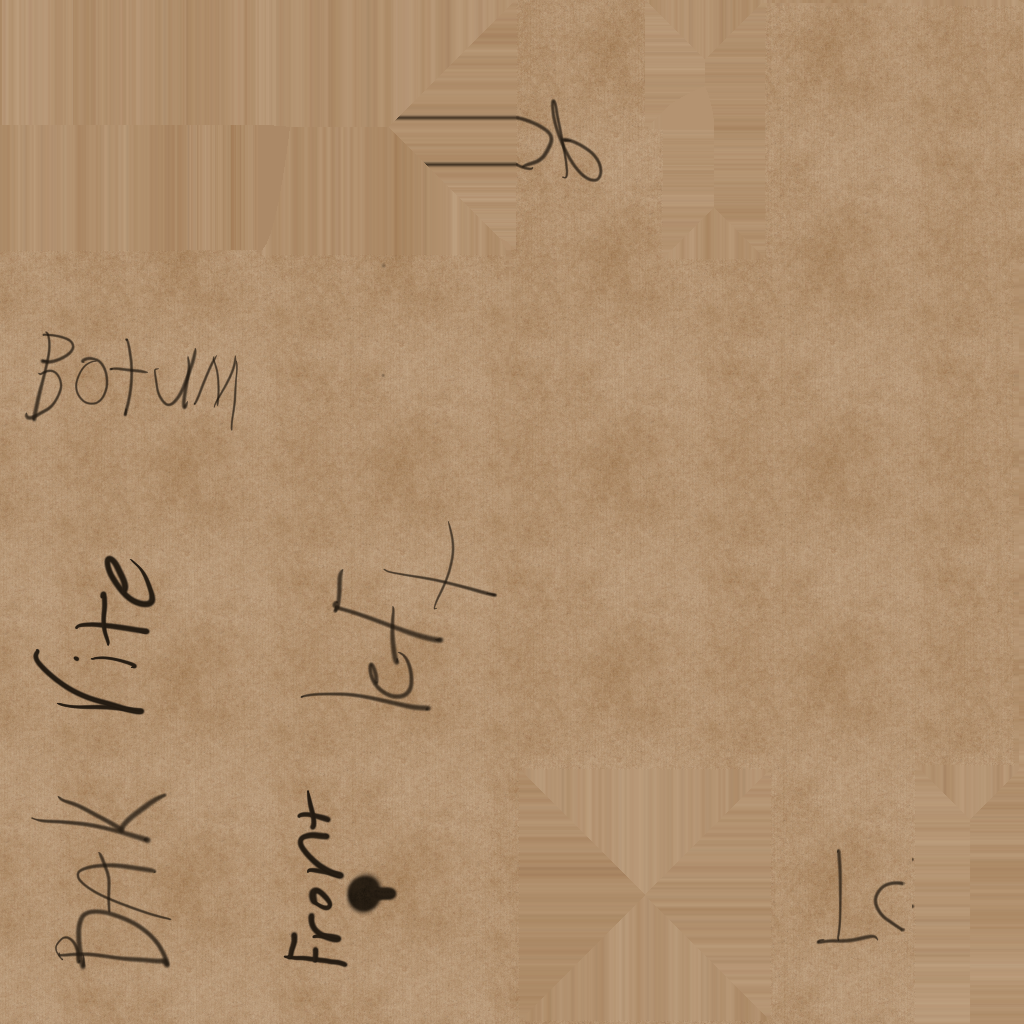 BotuM
rite
leFt
DAK
Front